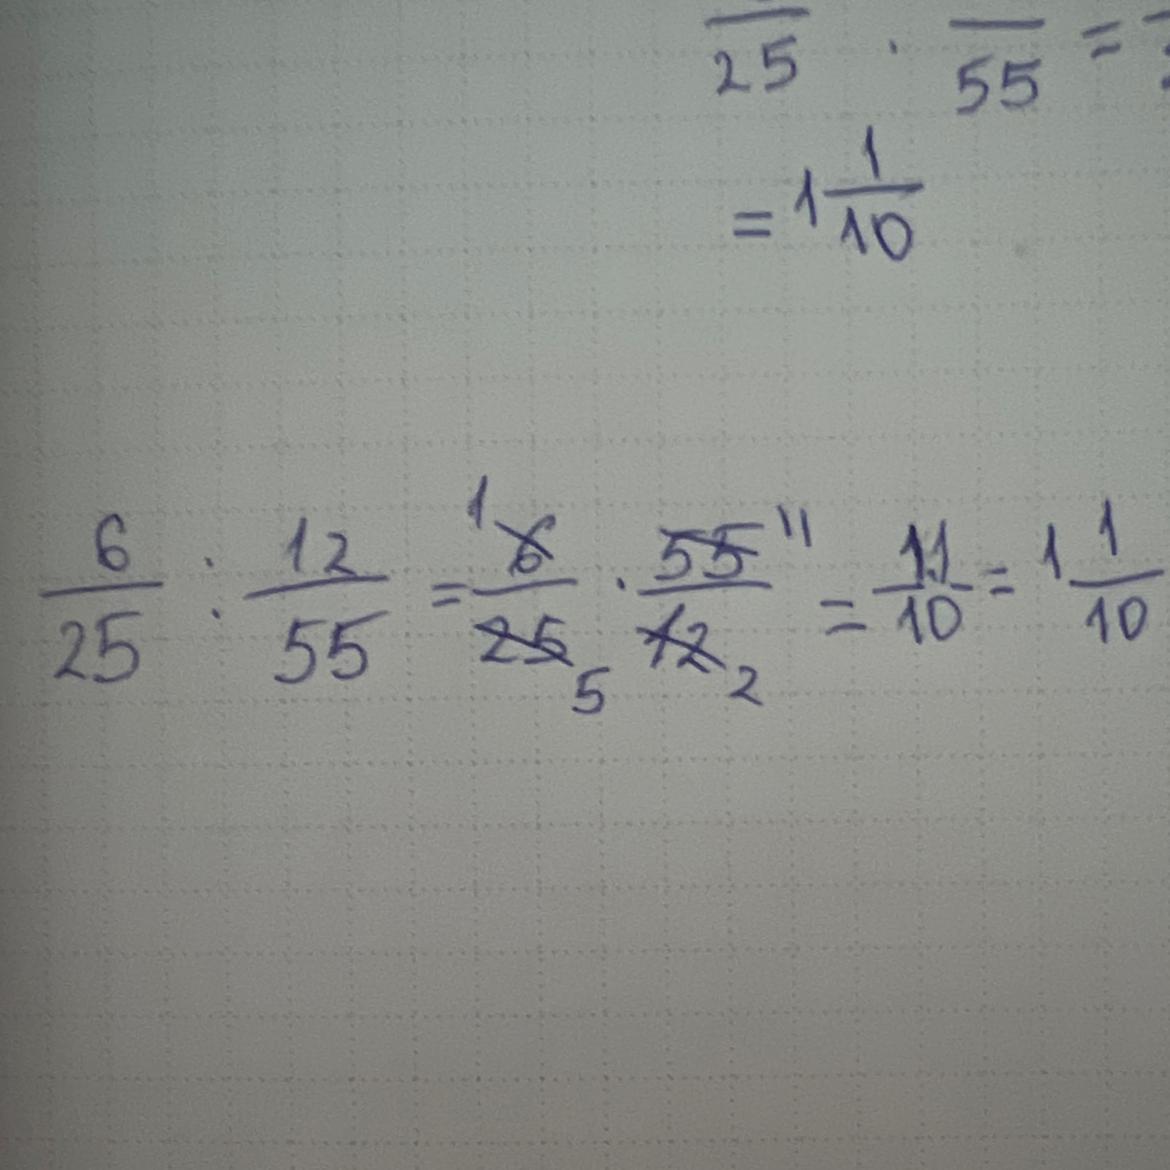 25 · 55 =
= 1 1/10
6/25 : 12/55 = 1 6/25 5 · 55 11/12 2 = 11/10 = 1 1/10